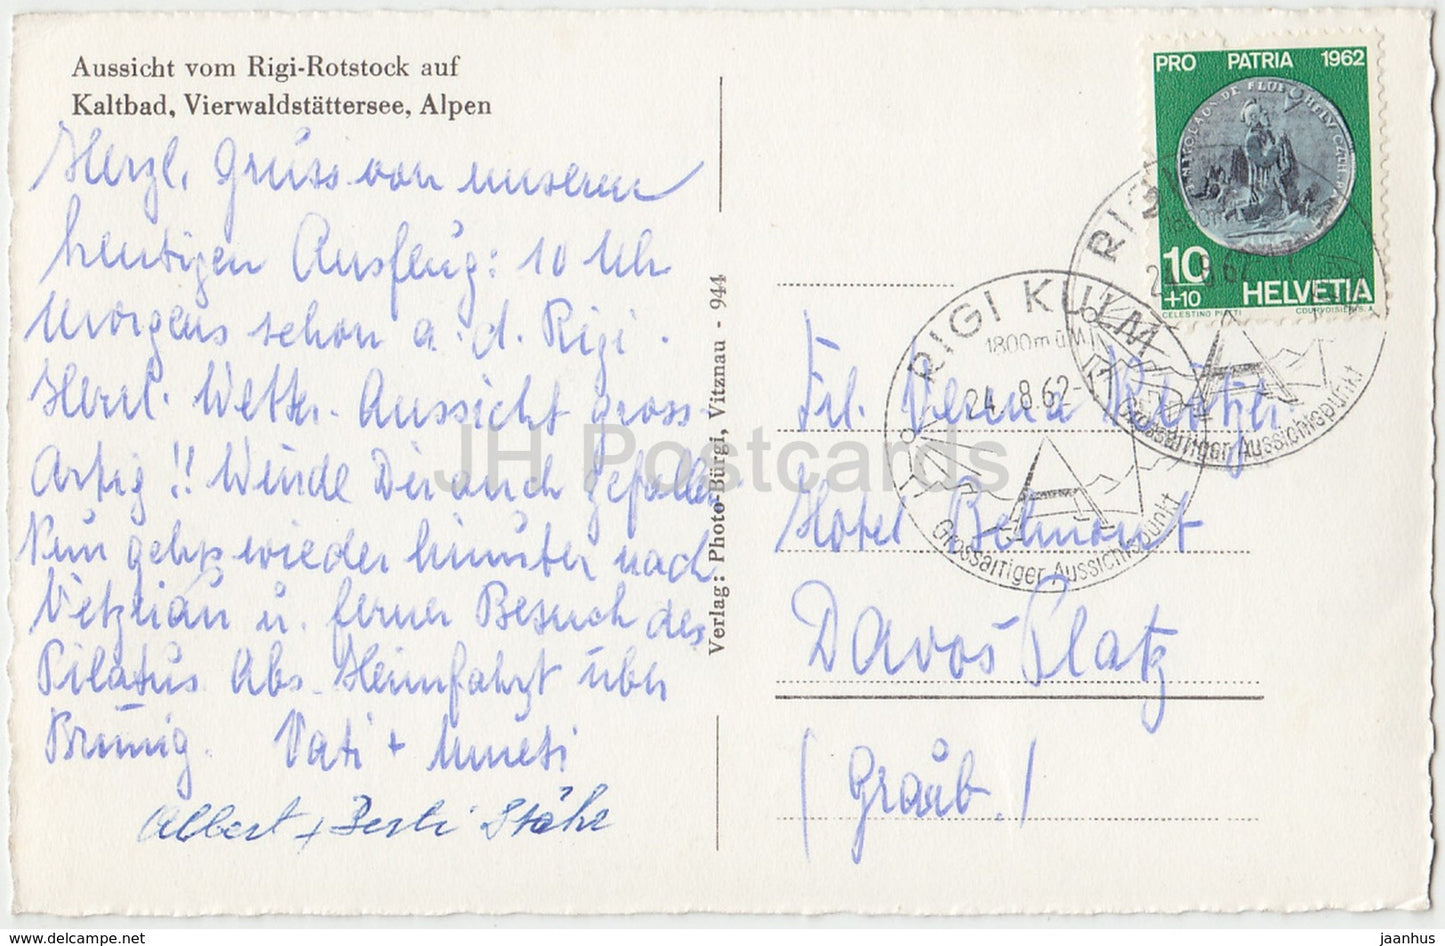 Aussicht vom Rigi-Rotstock auf
Kaltbad, Vierwaldstättersee, Alpen
Herzl. Gruss von unserem
heutigen Ausflug: 10 Uhr
Morgens schon a. d. Rigi.
Herrl. Wetter. Aussicht gross-
artig !! Würde Dir auch gefallen
Nun gehts wieder hinunter nach
u. ferner Besuch des
Pilatus Abs. Heimfahrt über
Brünig. Vati + Mueti
Albert + Berti Stähr
Verlag: Photo-Bürgi, Vitznau - 944
PRO PATRIA 1962
10
+10
HELVETIA
CELESTINO PIATTI
COURVOISIER S.A.
RIGI KULM
1800 m ü. M.
24. 8. 62-
Grossartiger Aussichtspunkt
RIGI
24. 8. 62
Grossartiger Aussichtspunkt
Frl. Verena
Hotel Belmont
Davos Platz
(Graub.)
JH Postcards
www.delcampe.net
jaanhus